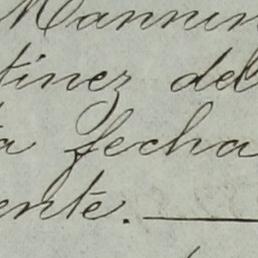 Mannin
tinez del
ta fecha
ente.